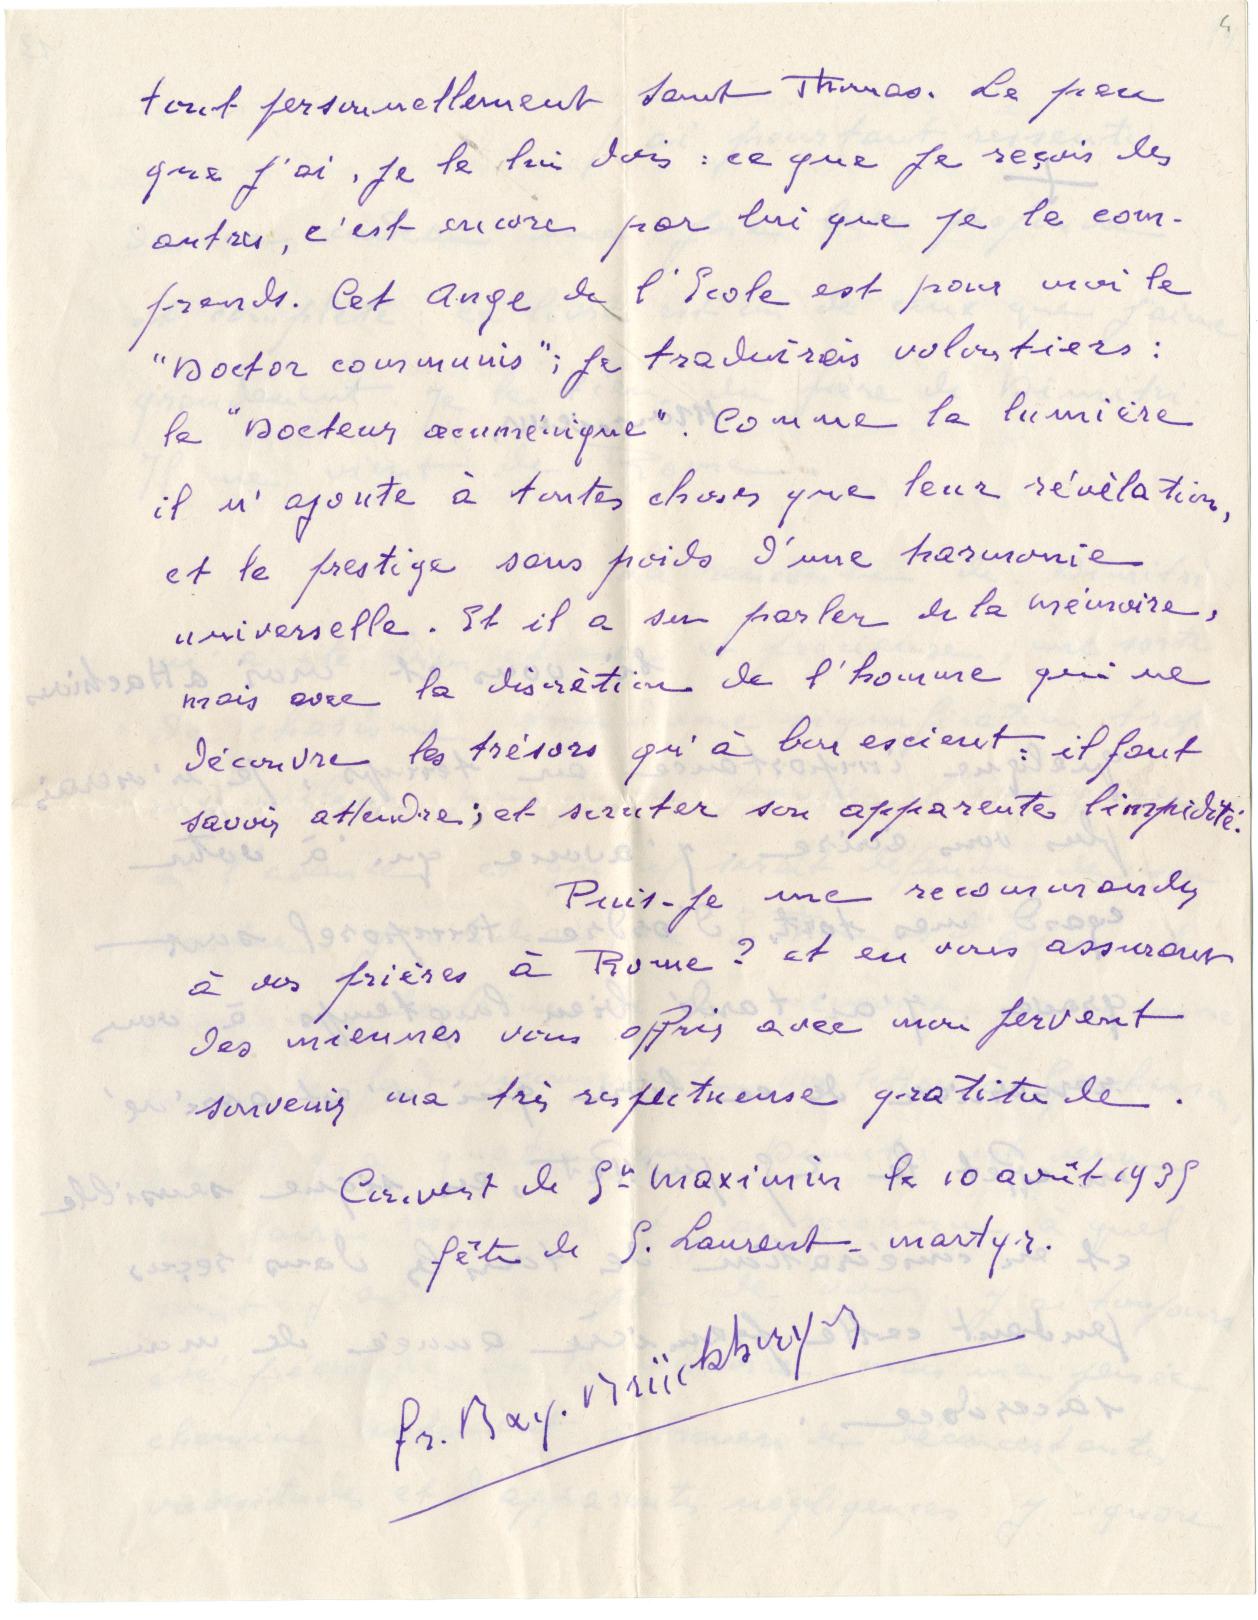 4
tout personnellement saint Thomas. Le peu
que j'ai, je le lui dois : ce que je reçois des
autres, c'est encore par lui que je le com-
prends. Cet Ange de l'Ecole est pour moi le
"Doctor communis"; je traduirais volontiers :
le "Docteur œcuménique". Comme la lumière
il n'ajoute à toutes choses que leur révélation,
et le prestige sans poids d'une harmonie
universelle. Et il a su parler de la mémoire,
mais avec la discrétion de l'homme qui ne
découvre les trésors qu'à bon escient : il faut
savoir attendre; et scruter son apparente limpidité.
Puis-je me recommander
à vos prières à Rome ? et en vous assurant
des miennes vous offrir avec mon fervent
souvenir ma très respectueuse gratitude.
Couvent de St Maximin le 10 août 1935
fête de S. Laurent - martyr.
fr. Ray. Brückberger